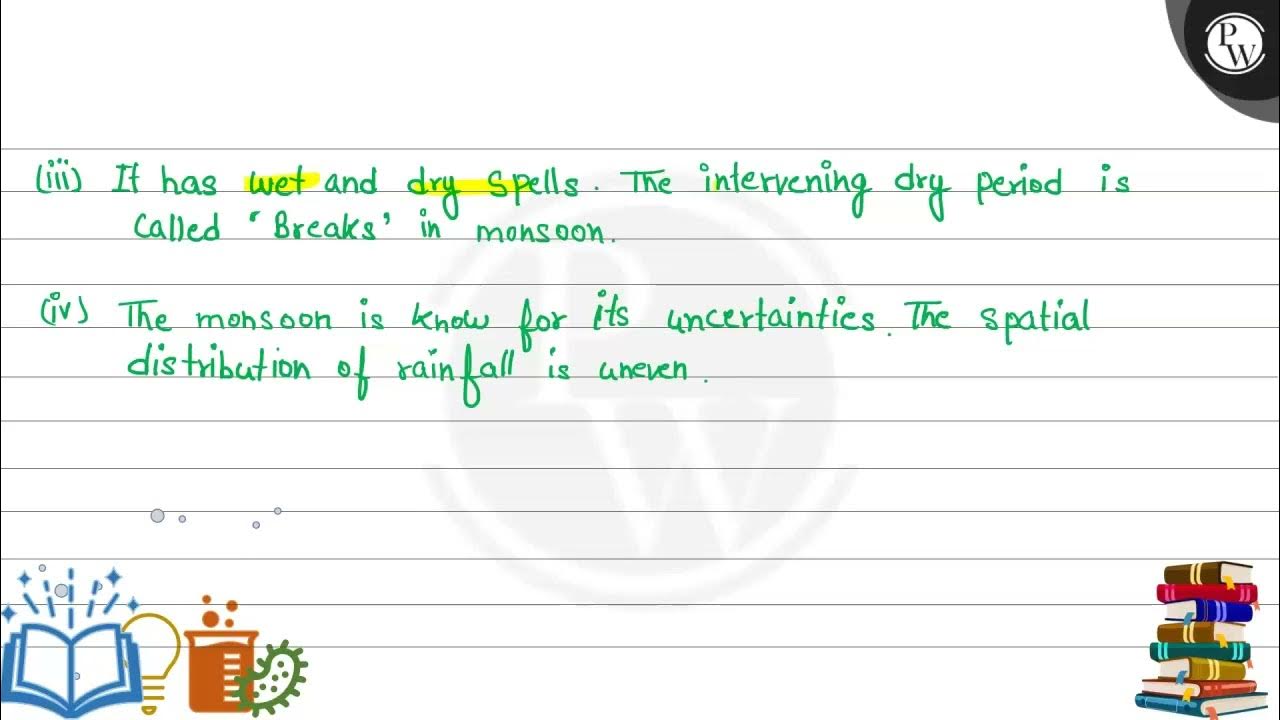 PW
(iii) It has wet and dry spells. The intervening dry period is
called 'Breaks' in monsoon.
(iv) The monsoon is know for its uncertainties. The spatial
distribution of rainfall is uneven.
PW